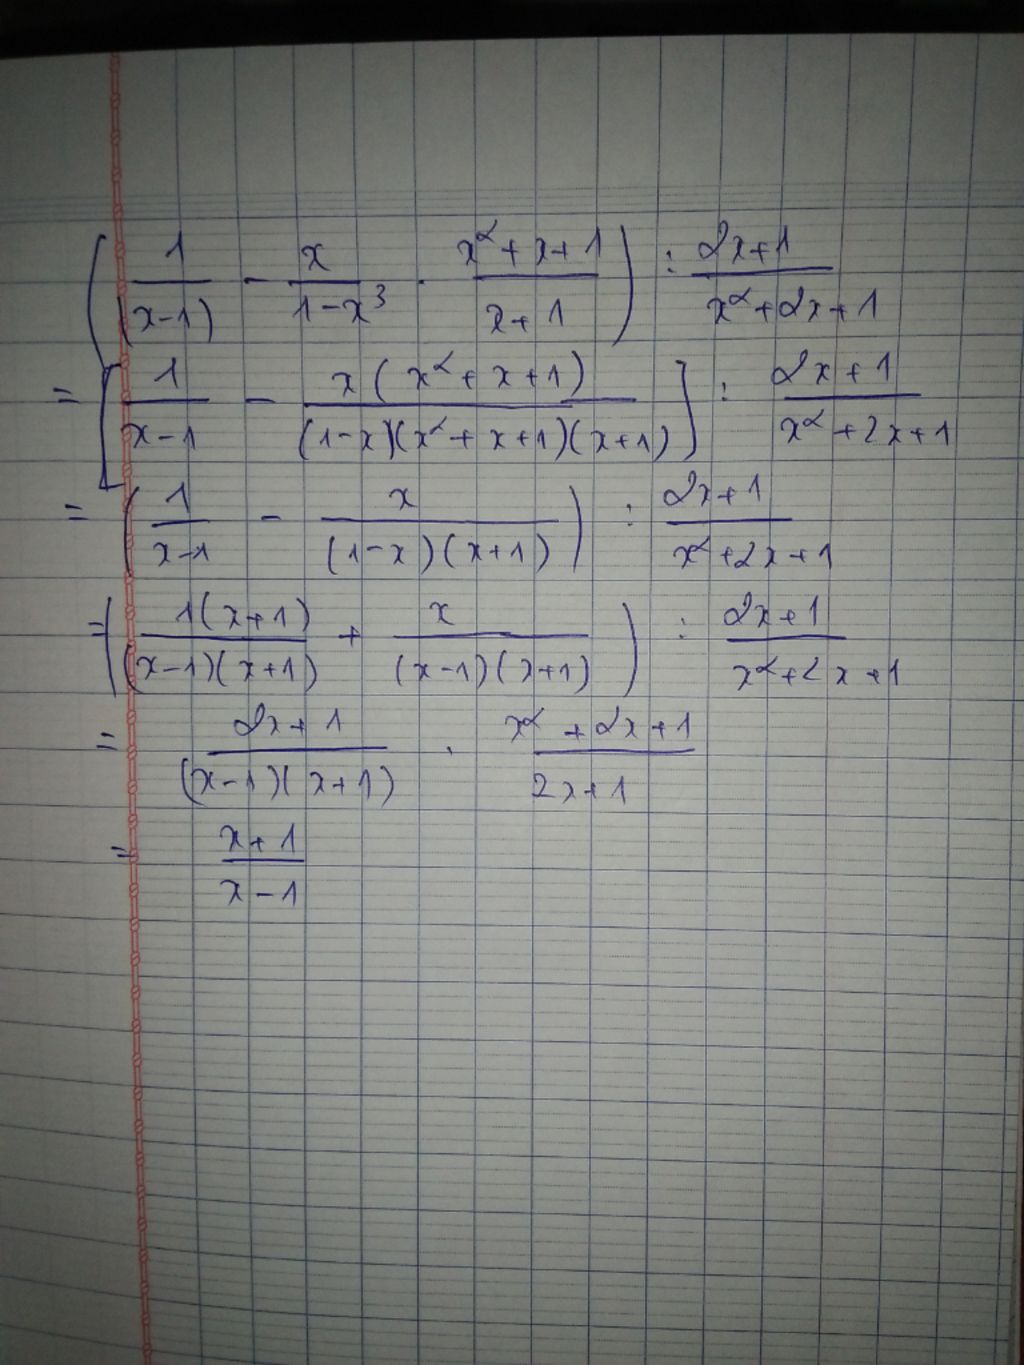 (1/(x-1) - x/(1-x³) · (x²+x+1)/(x+1)) : (2x+1)/(x²+2x+1)
= [1/(x-1) - x(x²+x+1)/((1-x)(x²+x+1)(x+1))] : (2x+1)/(x²+2x+1)
= (1/(x-1) - x/((1-x)(x+1))) : (2x+1)/(x²+2x+1)
= (1(x+1)/((x-1)(x+1)) + x/((x-1)(x+1))) : (2x+1)/(x²+2x+1)
= (2x+1)/((x-1)(x+1)) · (x²+2x+1)/(2x+1)
= (x+1)/(x-1)